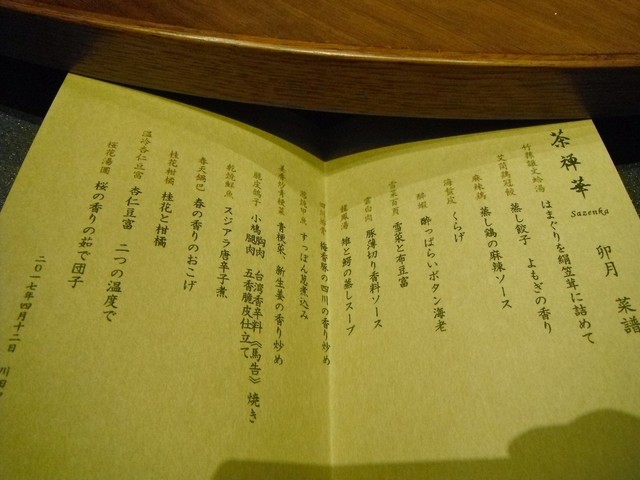 茶禅華
Sazenka
卯月 菜譜
はまぐりを絹笠茸に詰めて
蒸し餃子 よもぎの香り
麻辣鶏 蒸し鶏の麻辣ソース
海蜇皮 くらげ
酔蝦 酔っぱらいボタン海老
雪菜百頁 雪菜と布豆腐
雲白肉 豚薄切り香料ソース
雉と鰐の蒸しスープ
梅香豚の四川の香り炒め
すっぽん煮込み
青梗菜、新生姜の香り炒め
脆皮鴿子 小鳩胸肉 台湾香辛料《馬告》焼き
腿肉 五香脆皮仕立て
乾焼鮮魚 スジアラ唐辛子煮
春天鍋巴 春の香りのおこげ
桂花柑橘 桂花と柑橘
温冷杏仁豆腐 杏仁豆腐 二つの温度で
桜花湯圓 桜の香りの茹で団子
二〇一七年四月十二日